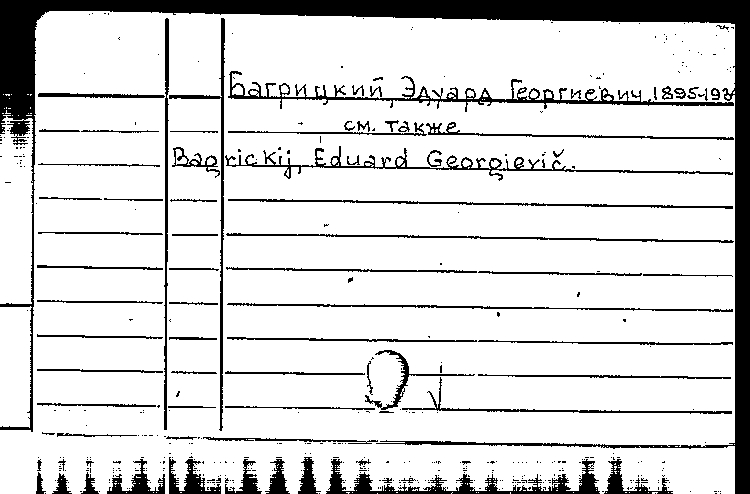 Багрицкий, Эдуард Георгиевич, 1895-193
см. также
Bagrickij, Eduard Georgievič.